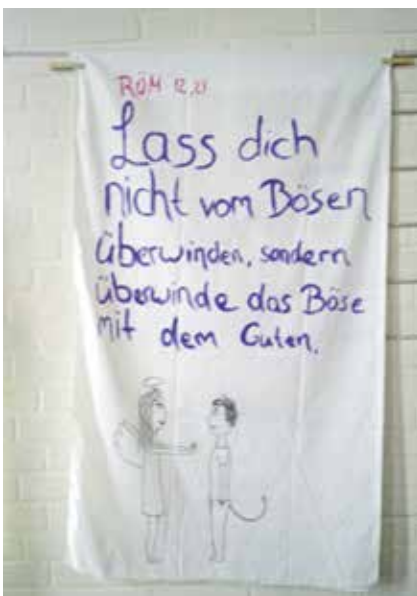 RÖM 12,21
Lass dich
nicht vom Bösen
überwinden, sondern
überwinde das Böse
mit dem Guten.